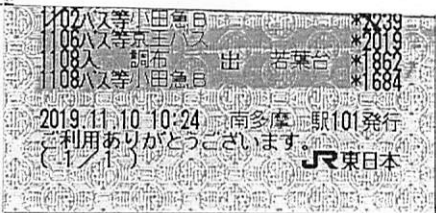 11/02バス等小田急B *2239
1106バス等京王バス *2019
1108入 調布 出 若葉台 *1862
1108バス等小田急B *1684
2019.11.10 10:24 南多摩 駅101発行
ご利用ありがとうございます。
(1/1) JR東日本